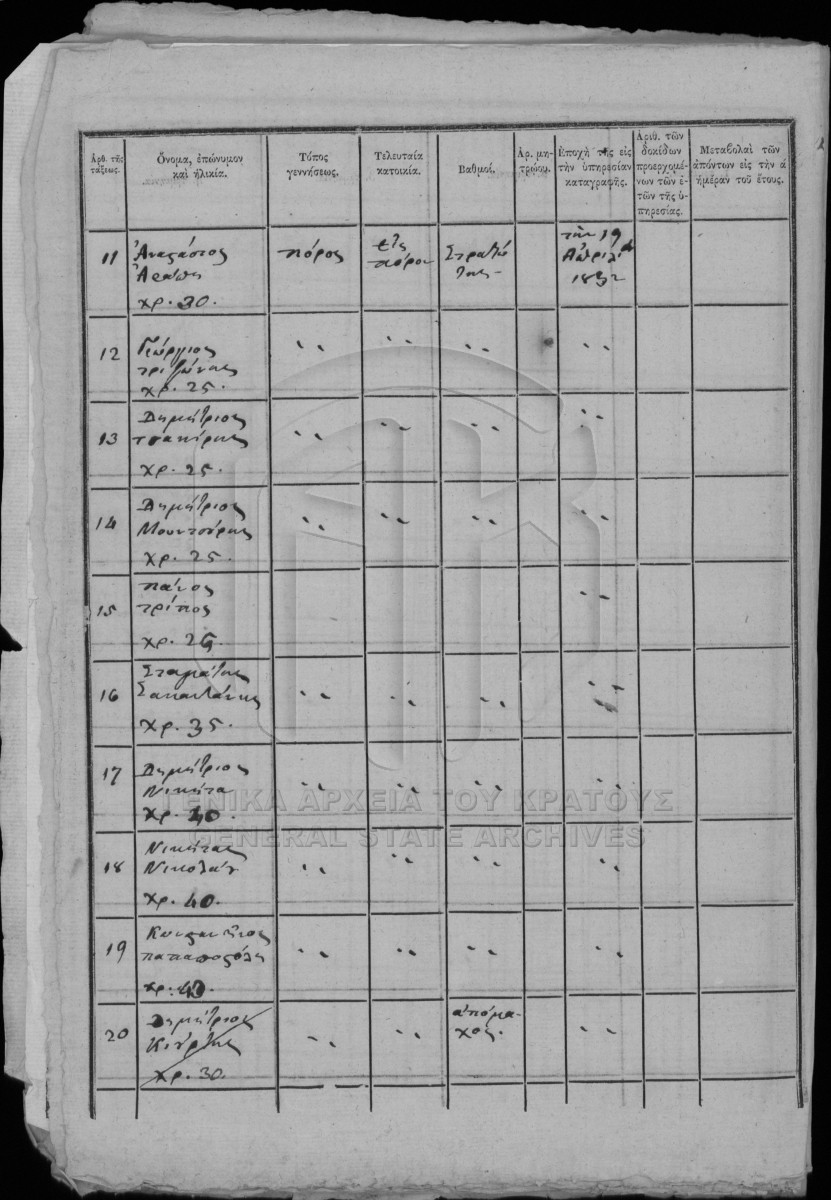 Ἀρθ. τῆς τάξεως.
Ὄνομα, ἐπώνυμον καὶ ἡλικία.
Τόπος γεννήσεως.
Τελευταία κατοικία.
Βαθμοί.
Ἀρ. μητρώου.
Ἐποχὴ τῆς εἰς τὴν ὑπηρεσίαν καταγραφῆς.
Ἀριθ. τῶν δοκέδων προερχομένων τῶν ἐτῶν τῆς ὑπηρεσίας.
Μεταβολαὶ τῶν ἀπόντων εἰς τὴν ά ἡμέραν τοῦ ἔτους.
11 Ἀναςάσιος πόρος εἰς Στρατιώ την 19
πόρον της Ἀπριλίου
χρ. 30. 1832
12 Γεώργιος
χρ. 25.
Δημήτριος
13 τσακίρης
χρ. 25
Δημήτριος
14
χρ. 25.
πάνος
15
χρ. 26.
Σταμάτης
16
χρ. 35.
17 Δημήτριος
Νικήτα
χρ. 40.
Νικήτας
18 Νικολάου
χρ. 40.
19 Κωνςαντῖνος
χρ. 40.
Δημήτριος ἀπόμα-
20 Κιούρτης χος.
χρ. 30.
ΓΕΝΙΚΑ ΑΡΧΕΙΑ ΤΟΥ ΚΡΑΤΟΥΣ
GENERAL STATE ARCHIVES